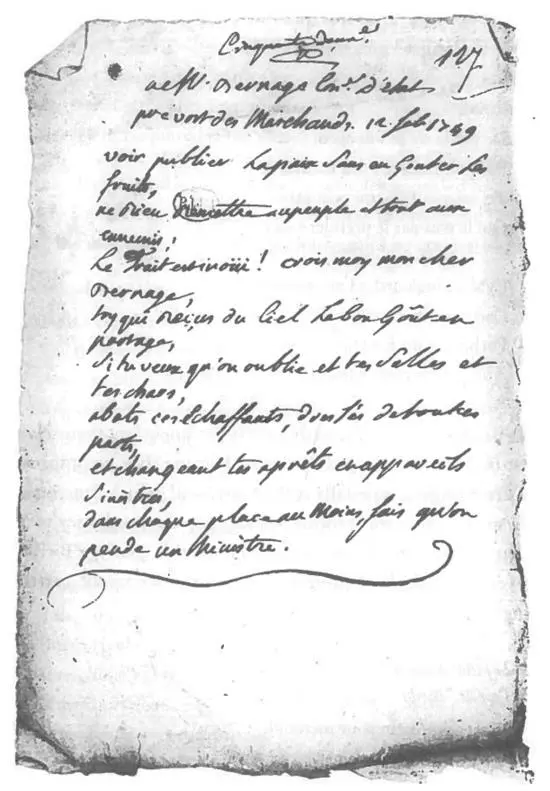 Cinquante deux.e
127
a M. Bernage Con.er d'état
prevost des Marchands. 12 feb 1749
voir publier la paix sans en Gouter les
fruits,
ne rien remettre au peuple et tout aux
ennemis;
Le Trait est inoüii! crois moy mon cher
Bernage,
toy qui reçus du Ciel Le bon Goût en
partage,
Si tu veux qu'on oublie et tes Salles et
tes chars,
abats ces Echaffauts, dressés de toutes
parts,
et changeant tes aprêts en appareils
Sinistres,
dans chaque place au Moins, fais qu'on
pende un Ministre.